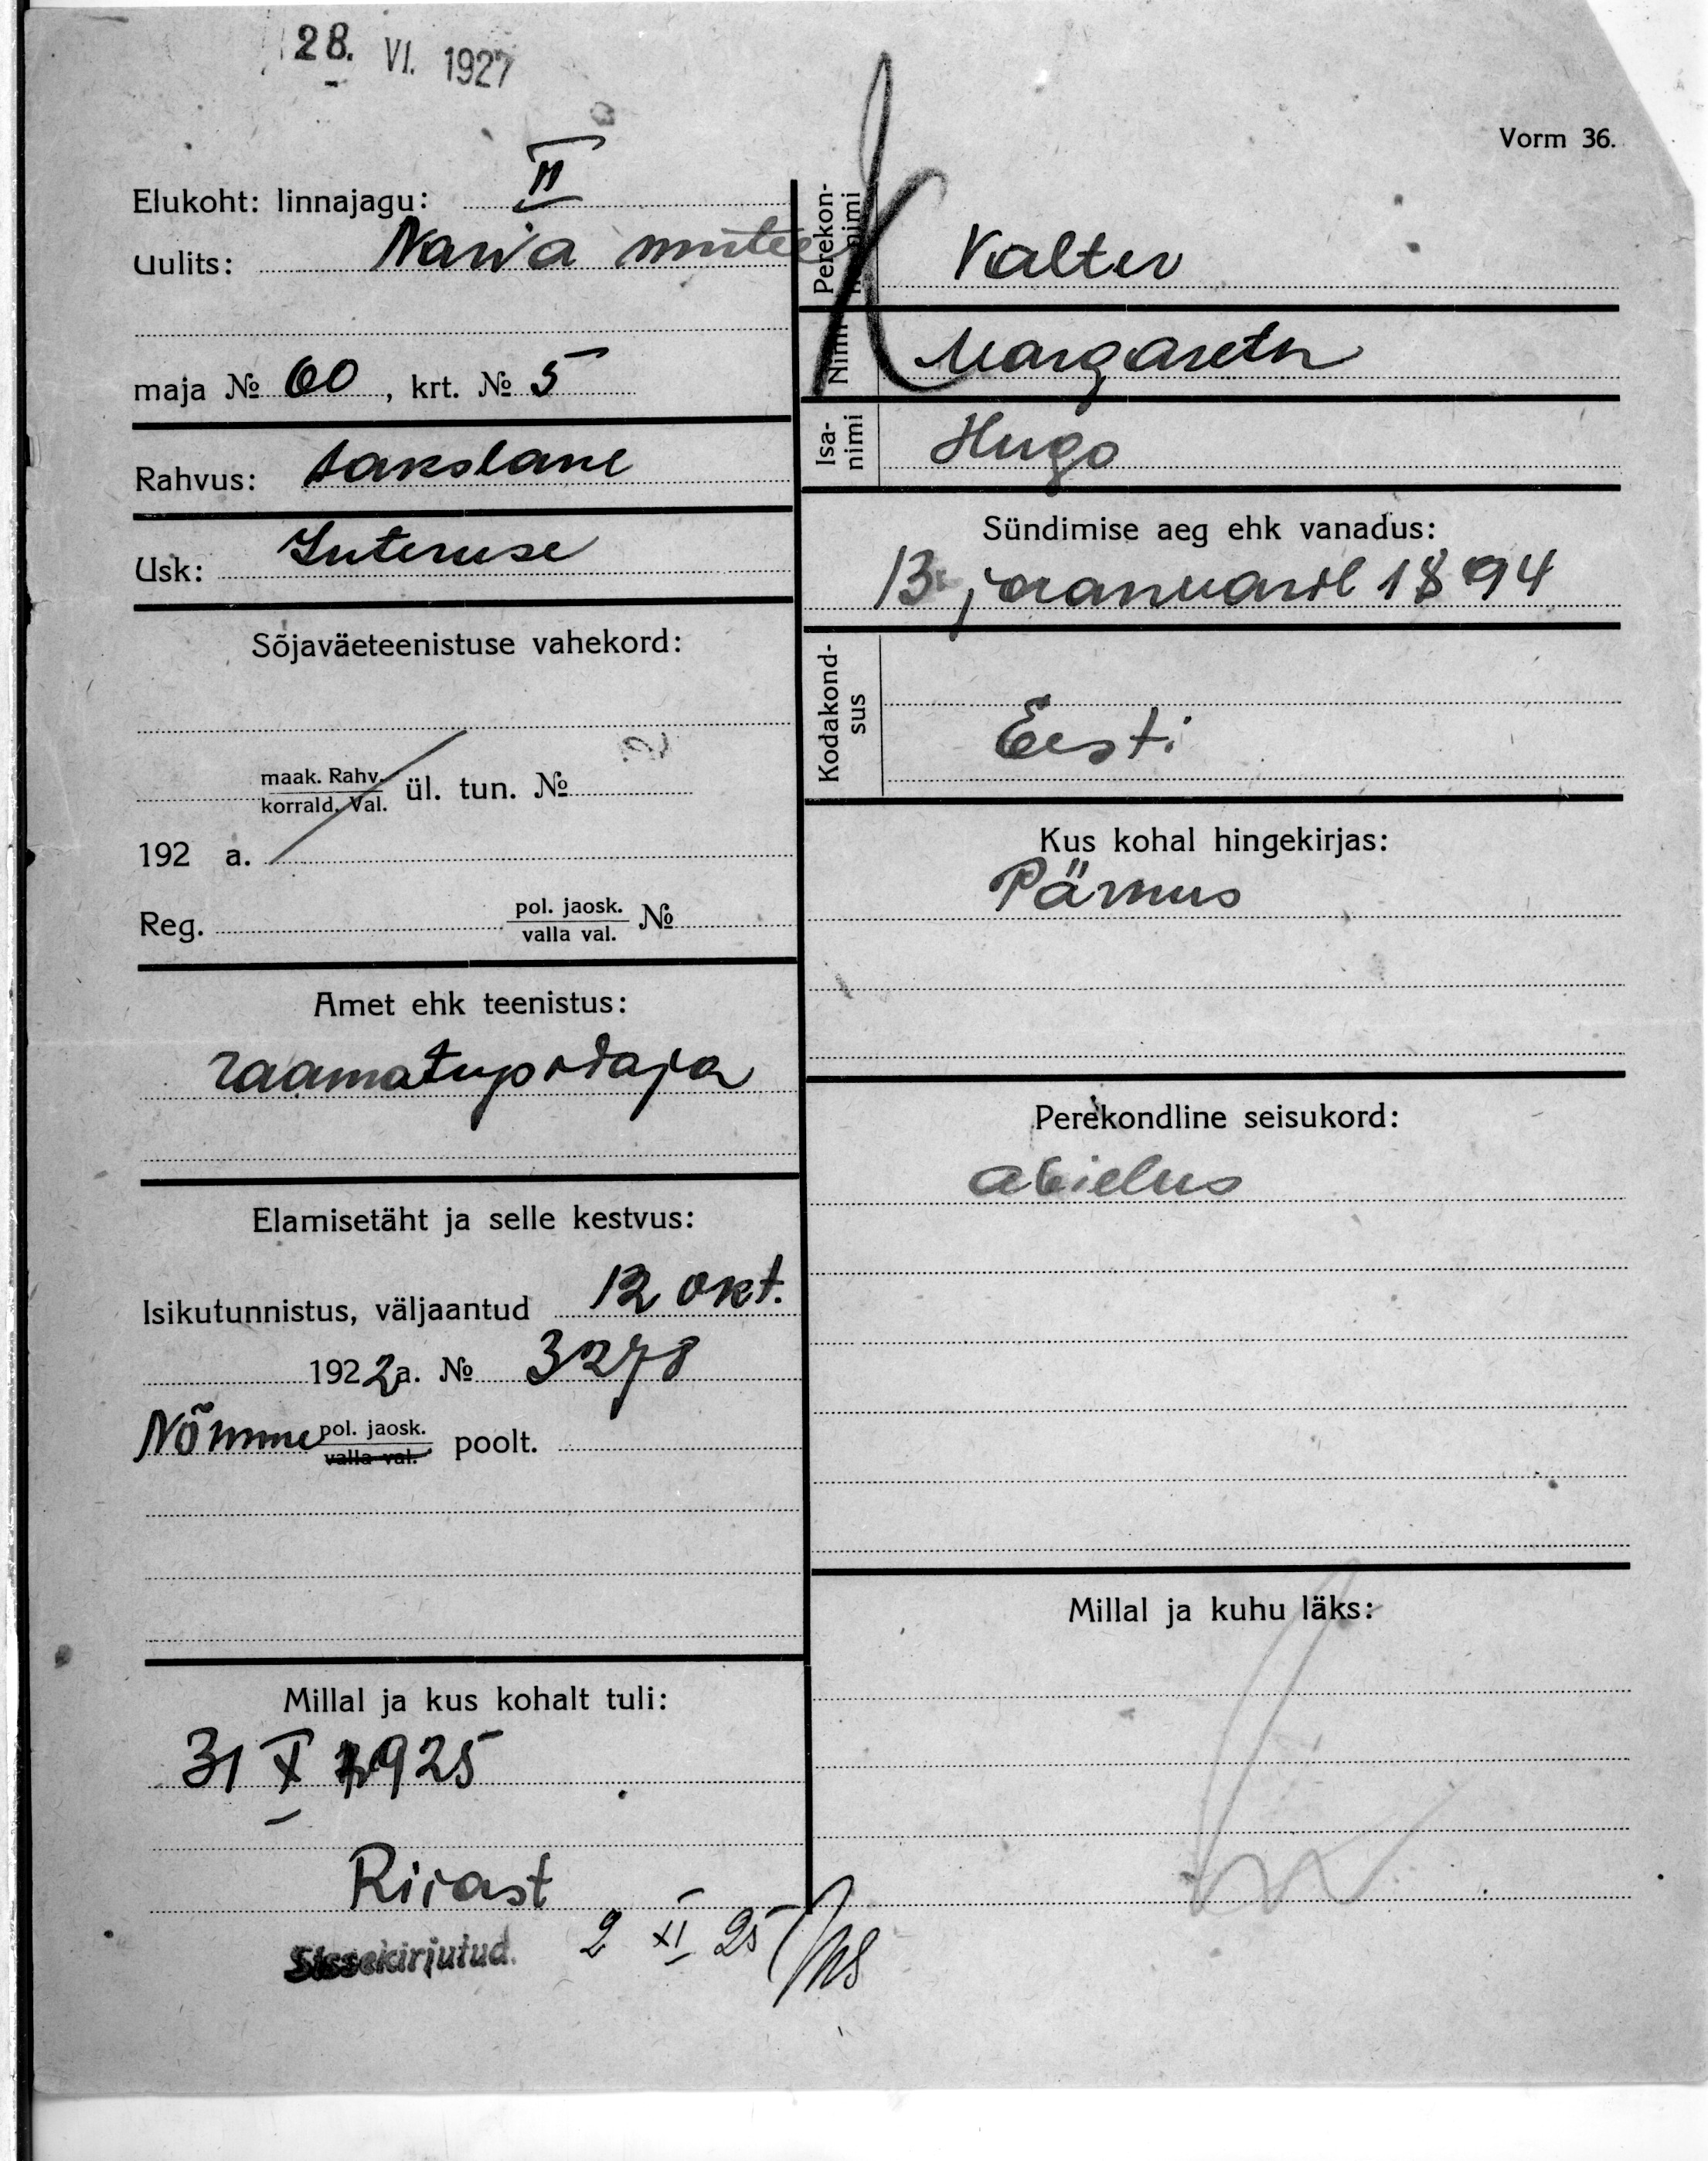 28. VI. 1927
Vorm 36.
Elukoht: linnajagu: II
Uulits: Narva mntee
maja № 60, krt. № 5
Rahvus: sakslane
Usk: Luteruse
Sõjaväeteenistuse vahekord:
maak. Rahv.
korrald. Val. ül. tun. №
192 a.
Reg. pol. jaosk.
valla val. №
Amet ehk teenistus:
raamatupidaja
Elamisetäht ja selle kestvus:
Isikutunnistus, väljaantud 12 okt.
1922a. № 3278
Nõmme pol. jaosk.
valla val. poolt.
Millal ja kus kohalt tuli:
31 X 1925
Sissekirjutud. 2 XI 25
Perekon-
nanimi Valter
Nimi Margareth
Isa-
nimi Hugo
Sündimise aeg ehk vanadus:
13. jaanuaril 1894
Kodakond-
sus Eesti
Kus kohal hingekirjas:
Pärnus
Perekondline seisukord:
abielus
Millal ja kuhu läks: